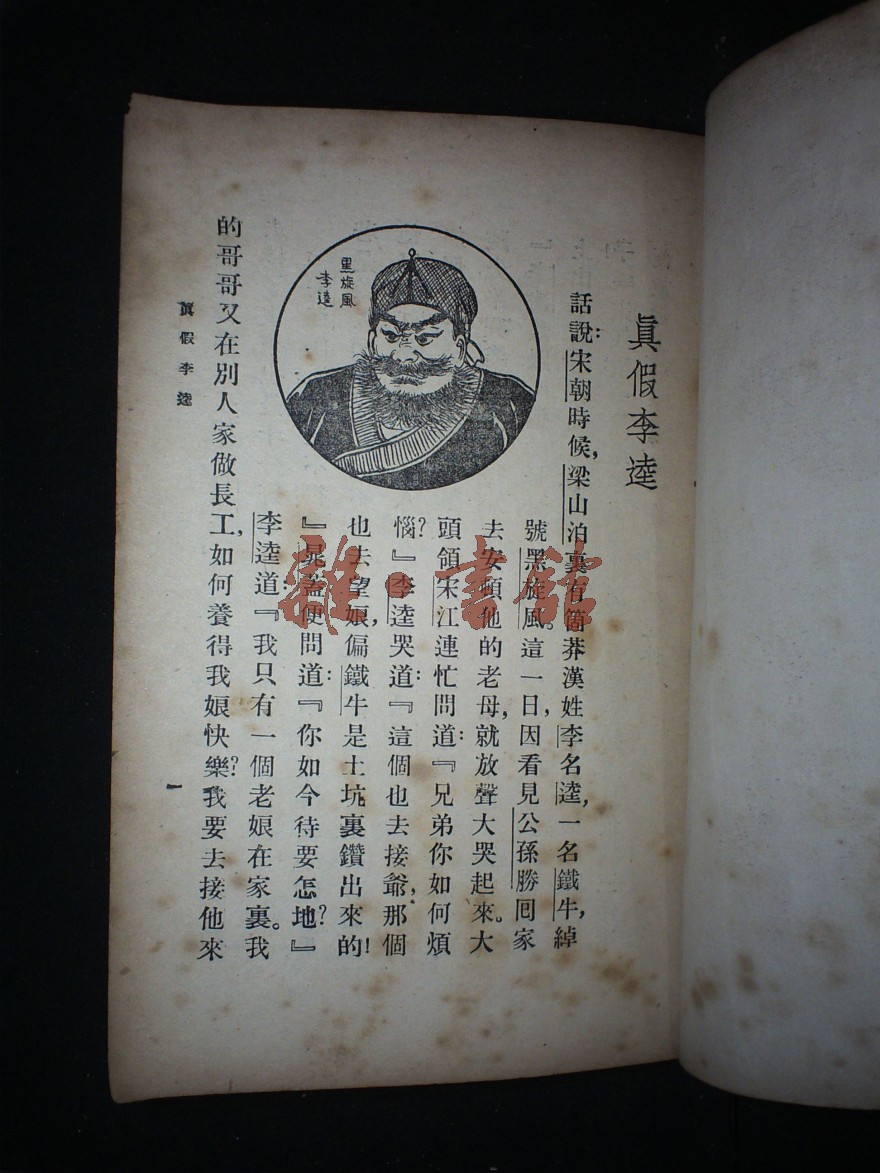 眞假李逵
話說：宋朝時候，梁山泊裏有箇莽漢姓李名逵，一名鐵牛，綽
號黑旋風。這一日，因看見公孫勝囘家
去安頓他的老母，就放聲大哭起來。大
頭領宋江連忙問道：『兄弟你如何煩
惱？』李逵哭道：『這個也去接爺，那個
也去望娘，偏鐵牛是土坑裏鑽出來的！
』晁蓋便問道：『你如今待要怎地？』
李逵道：『我只有一個老娘在家裏。我
的哥哥又在別人家做長工，如何養得我娘快樂？我要去接他來
黑旋風
李逵
眞假李逵
一
雜·書館